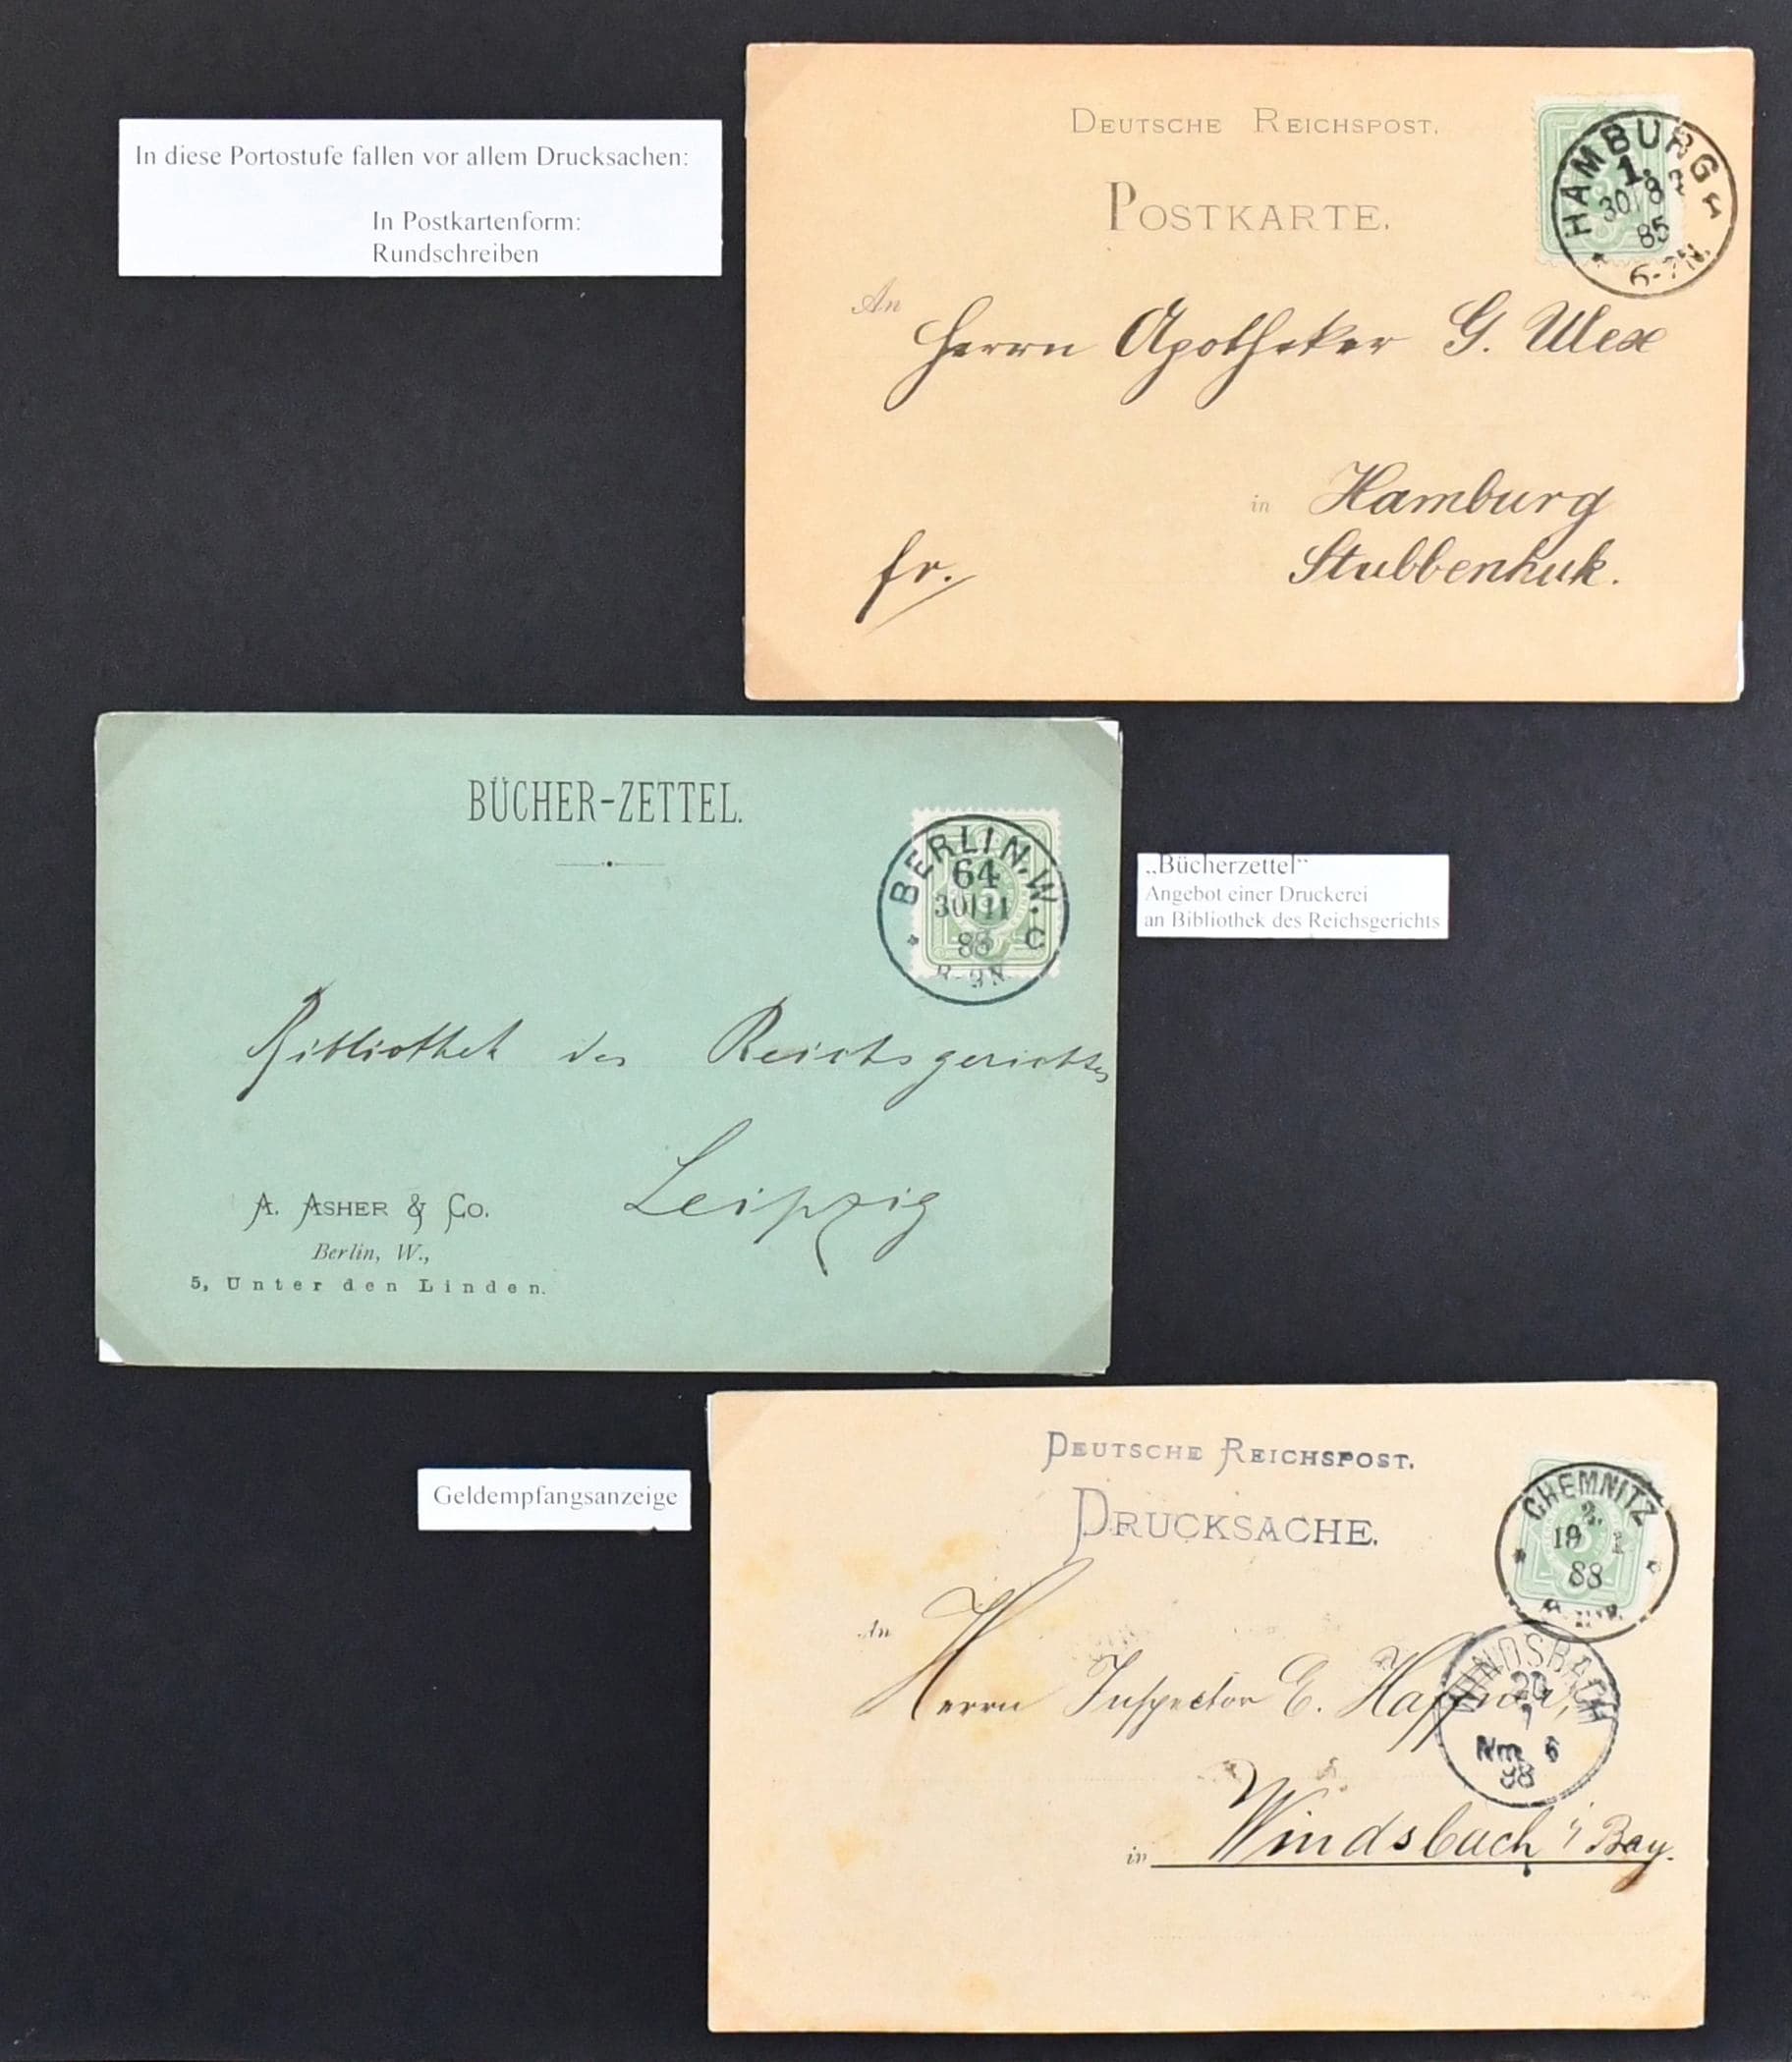 In diese Portostufe fallen vor allem Drucksachen:
In Postkartenform:
Rundschreiben
DEUTSCHE REICHSPOST.
POSTKARTE.
HAMBURG
1.
30/8
85
6-7N.
An
Herrn Apotheker G. Ulex
in Hamburg
Stubbenhuk.
fr.
BÜCHER-ZETTEL.
BERLIN, W.
64
30/11
88 C
8-9N.
Bibliothek des Reichsgerichtes
Leipzig
A. ASHER & CO.
Berlin, W.,
5, Unter den Linden.
„Bücherzettel“
Angebot einer Druckerei
an Bibliothek des Reichsgerichts
Geldempfangsanzeige
DEUTSCHE REICHSPOST.
DRUCKSACHE.
CHEMNITZ
19
88
An
Herrn Inspector E. Haffner,
WINDSBACH
20
Nm 6
88
in Windsbach i/Bay.